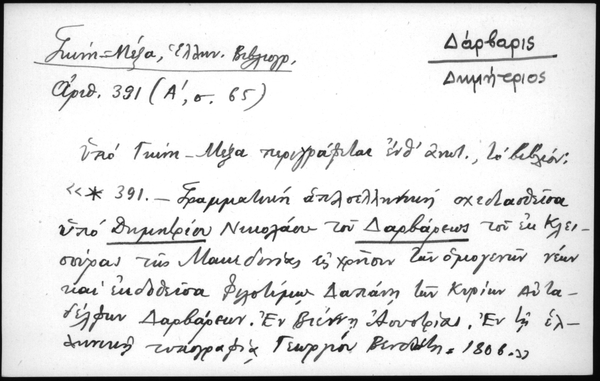 Γκίνη-Μέξα, Ἑλλην. Βιβλιογρ.
Ἀριθ. 391 (Α', σ. 65)
Δάρβαρις
Δημήτριος
ὑπό Γκίνη-Μέξα περιγράφεται ἐνθ' ἀνωτ., τό βιβλίον:
«* 391. — Γραμματική ἁπλοελληνική σχεδιασθεῖσα
ὑπό Δημητρίου Νικολάου τοῦ Δαρβάρεως τοῦ ἐκ Κλει-
σούρας τῆς Μακεδονίας εἰς χρῆσιν τῶν ὁμογενῶν νέων
καί ἐκδοθεῖσα φιλοτίμῳ δαπάνῃ τῶν Κυρίων Αὐτα-
δέλφων Δαρβάρεων. Ἐν Βιέννῃ Ἀουστρίας. Ἐν τῇ ἑλ-
ληνικῇ τυπογραφίᾳ Γεωργίου Βενδότη. 1806.»